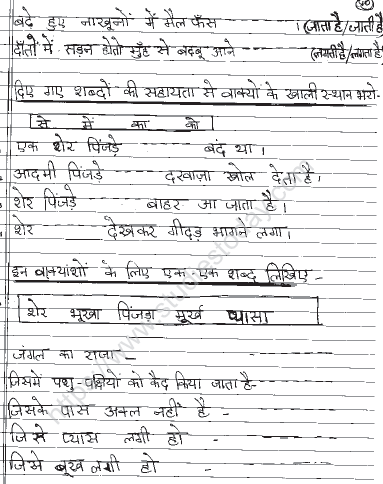 ५०
बढ़े हुए नाखूनों में मैल फँस ---------- । (जाता है/जाती है)
दाँतों में सड़न होतो मुँह से बदबू आने ---------- (लगती है/लगता है)
दिए गए शब्दों की सहायता से वाक्यों के खाली स्थान भरो-
से में का को
एक शेर पिंजड़े ---------- बंद था।
आदमी पिंजड़े ---------- दरवाज़ा खोल देता है।
शेर पिंजड़े ---------- बाहर आ जाता है।
शेर ---------- देखकर गीदड़ भागने लगा।
इन वाक्यांशों के लिए एक एक शब्द लिखिए -
शेर भूखा पिंजड़ा मूर्ख प्यासा
जंगल का राजा -
जिसमें पशु-पक्षियों को कैद किया जाता है-
जिसके पास अक्ल नहीं है -
जिसे प्यास लगी हो -
जिसे भूख लगी हो -
https://www.studiestoday.com